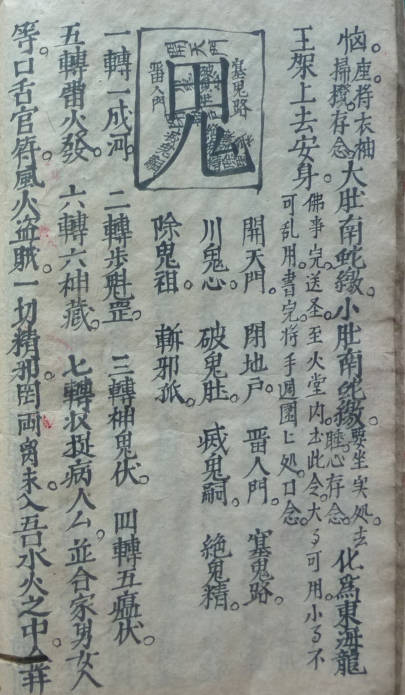 恼。座。將衣袖
掃攪存念。
大肚南蛇繳。小肚南蛇繳。要坐实处。去
睡心存念。
化為東海龍
王架上去安身。
佛事完送圣至火堂内去此令。大可用。小不
可乱用。書完。将手週圍匕处。口念。
開天門。閉地户。畱人門。塞鬼路。
川鬼心。破鬼肚。滅鬼嗣。絶鬼精。
除鬼祖。斬邪狐。
塞鬼路
鬼
畱人門
一轉一成河。二轉步魁罡。三轉神鬼伏。四轉五瘟伏。
五轉雷火發。六轉六神藏。七轉收捉病人厶。並合家男女人
等。口舌官符。風火盗賊。一切精邪罔両。入吾水火之中。